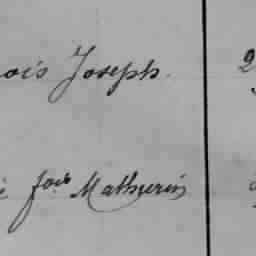 ois Joseph. 2
fois Mathurin